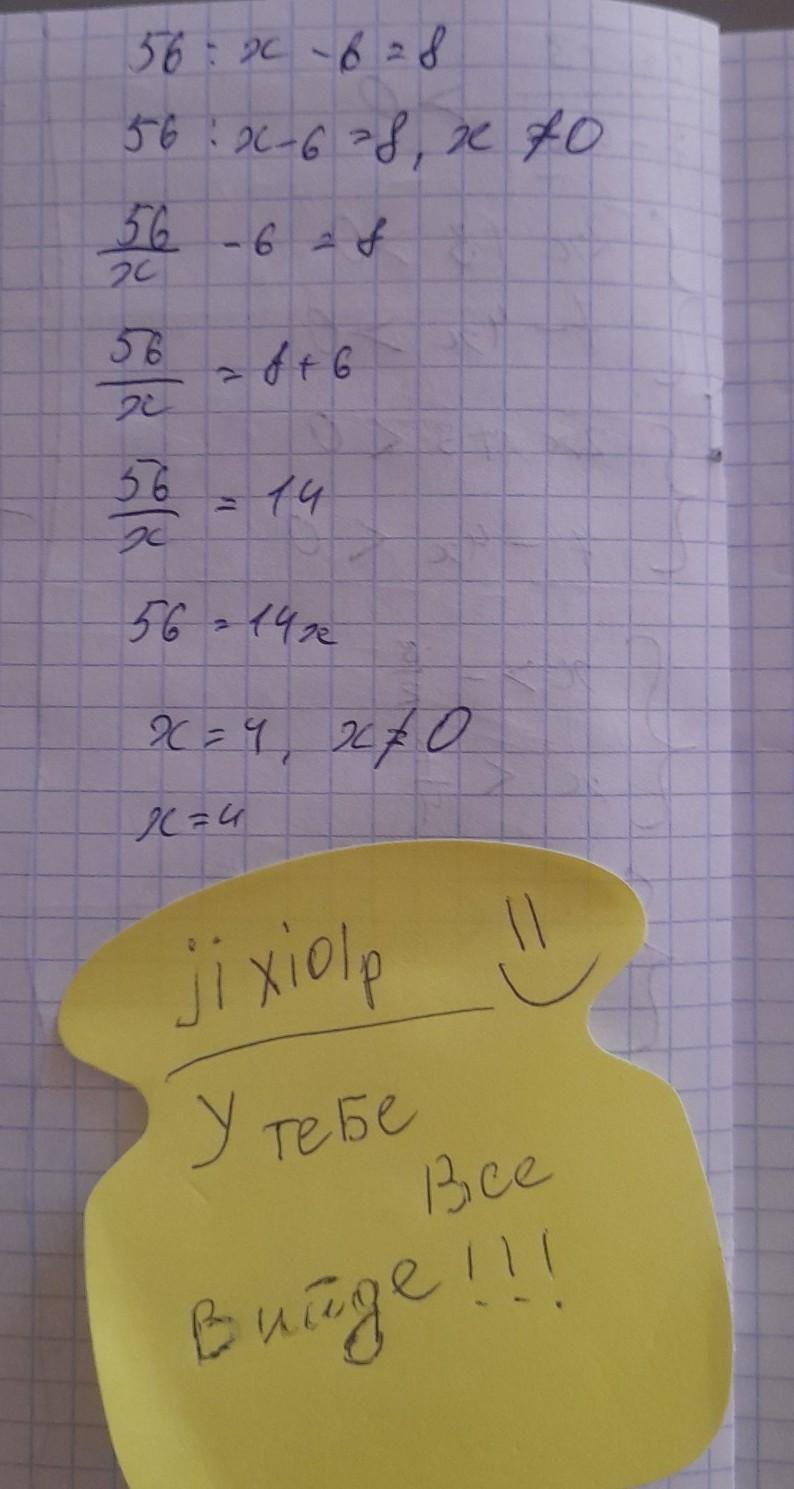 56 : x - 6 = 8
56 : x - 6 = 8, x ≠ 0
56/x - 6 = 8
56/x = 8 + 6
56/x = 14
56 = 14x
x = 4, x ≠ 0
x = 4
jixiolp
У тебе
Все
Вийде!!!